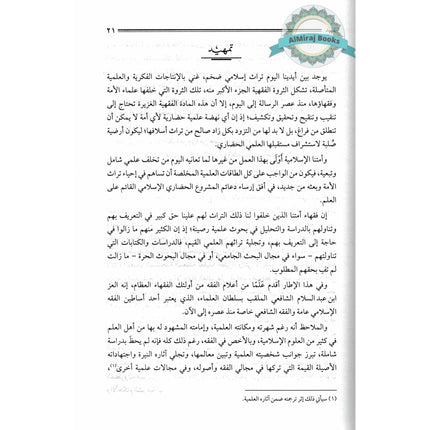 AlMiraj Books
٢١
تمهيد
يوجد بين أيدينا اليوم تراث إسلامي ضخم، غني بالإنتاجات الفكرية والعلمية
المتأصلة، تشكل الثروة الفقهية الجزء الأكبر منه، تلك الثروة التي خلفها علماء الأمة
وفقهاؤها، منذ عصر الرسالة إلى اليوم، إلا أن هذه المادة الفقهية الغزيرة تحتاج إلى
تنقيب وتنقيح وتحقيق وتكشيف؛ إذ إن أي نهضة علمية حضارية لأي أمة لا يمكن أن
تنطلق من فراغ، بل لا بد لها من التزود بكل زاد صالح من تراث أسلافها؛ ليكون أرضية
صُلبة لاستشراف مستقبلها العلمي الحضاري.
وأمتنا الإسلامية أَوْلَى بهذا العمل من غيرها لما تعانيه اليوم من تخلف علمي شامل
وتبعية، فيكون من الواجب على كل الطاقات العلمية المخلصة أن تساهم في إحياء تراث
الأمة وبعثه من جديد، في أفق إرساء دعائم المشروع الحضاري الإسلامي القائم على
العلم.
إن فقهاء أمتنا الذين خلفوا لنا ذلك التراث لهم علينا حق كبير في التعريف بهم
وتناولهم بالدراسة والتحليل في بحوث علمية رصينة؛ إذ إن الكثير منهم ما زالوا في
حاجة إلى التعريف بهم، وتجلية تراثهم العلمي القيم، فالدراسات والكتابات التي
تناولتهم - سواء في مجال البحث الجامعي، أو في مجال البحوث الحرة - ما زالت
لم تفِ بحقهم المطلوب.
وفي هذا الإطار أقدم عَلَمًا من أعلام الفقه من أولئك الفقهاء العظام، إنه العز
ابن عبد السلام الشافعي الملقب بسلطان العلماء، الذي يعتبر أحد أساطين الفقه
الإسلامي عامة والفقه الشافعي خاصة منذ عصره إلى الآن.
والملاحظ أنه رغم شهرته ومكانته العلمية، وإمامته المشهود له بها من أهل العلم
في كثير من العلوم الإسلامية، وبالأخص في الفقه، رغم كل ذلك فإنه لم يحظ بدراسة
شاملة، تبرز جوانب شخصيته العلمية وتبين معالمها، وتجلي آثاره النيرة واجتهاداته
الأصيلة القيمة التي تركها في مجالي الفقه وأصوله، وفي مجالات علمية أخرى(١)،
(١) سيأتي ذلك إثر ترجمته ضمن آثاره العلمية.